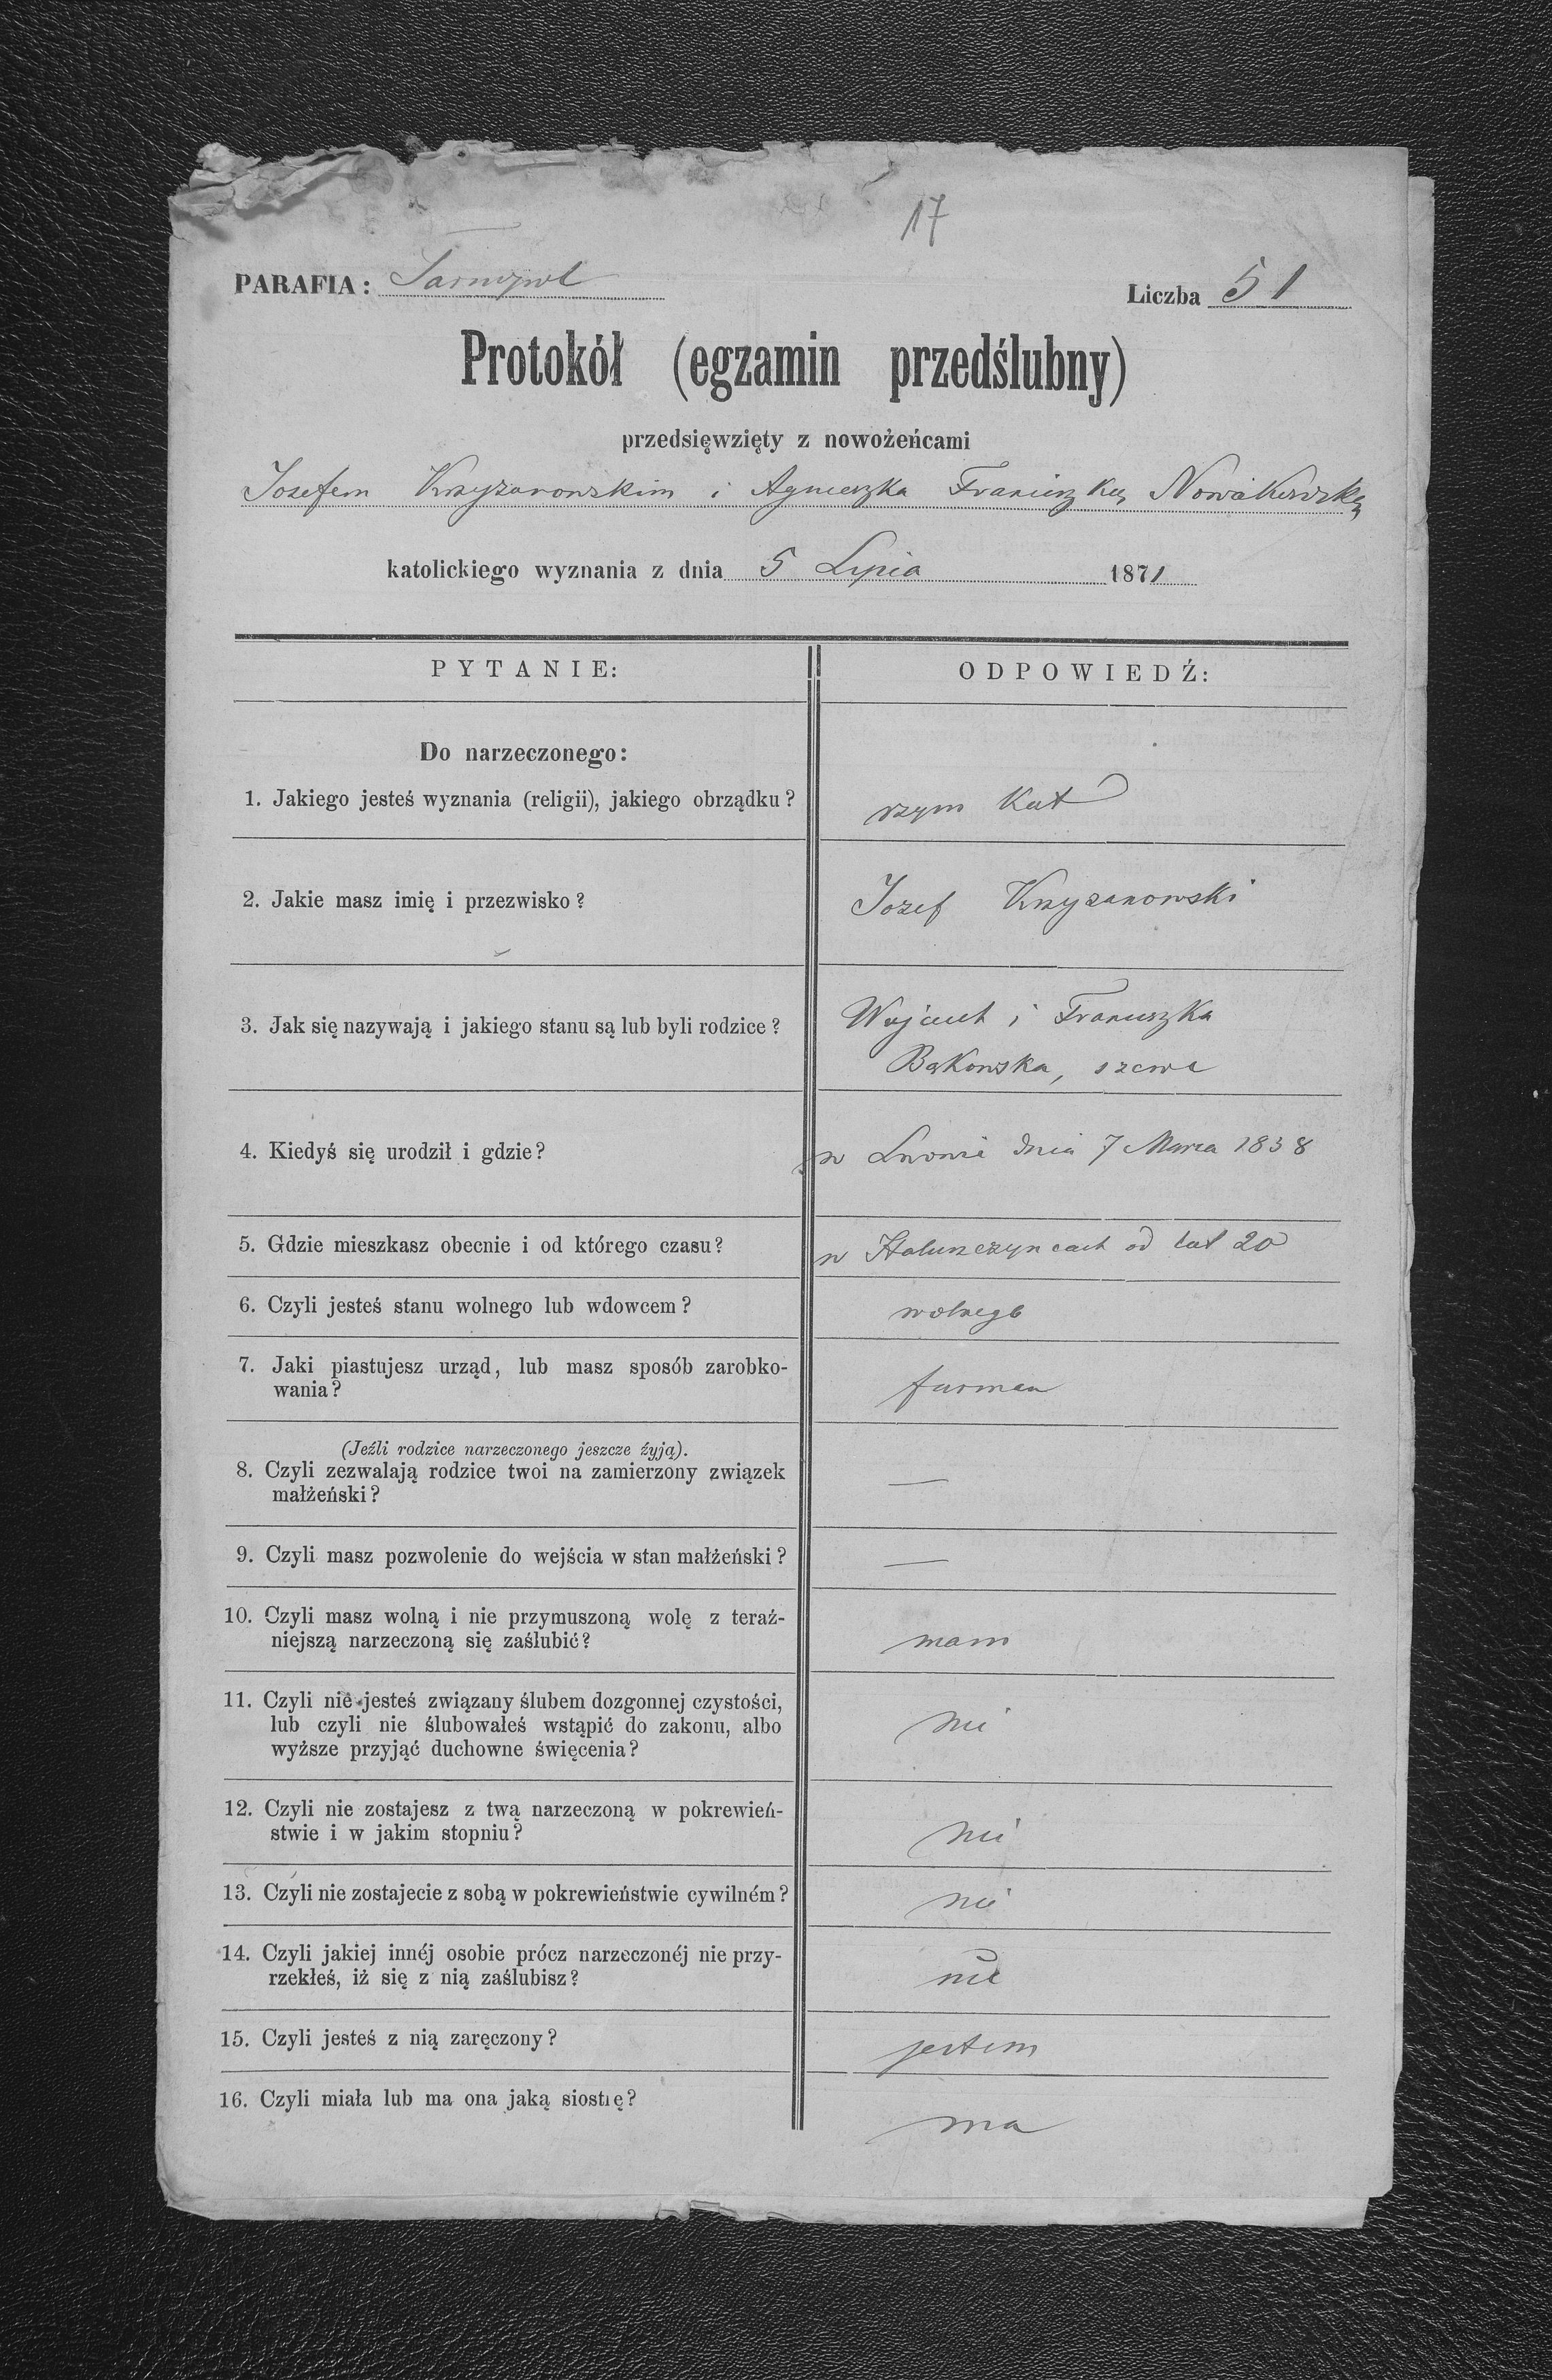 17
PARAFIA: Tarnopol
Liczba 51
Protokół (egzamin przedślubny)
przedsięwzięty z nowożeńcami
Josefem Krzyżanowskim i Agnieszka Franciszką Nowakowską
katolickiego wyznania z dnia 5 Lipca 1871
PYTANIE:
ODPOWIEDŹ:
Do narzeczonego:
1. Jakiego jesteś wyznania (religii), jakiego obrządku?
rzym Kat
2. Jakie masz imię i przezwisko?
Jozef Krzyzanowski
3. Jak się nazywają i jakiego stanu są lub byli rodzice?
Wojciech i Franciszka
Bąkowska, szewc
4. Kiedyś się urodził i gdzie?
w Lwowie dnia 7 Marca 1838
5. Gdzie mieszkasz obecnie i od którego czasu?
w Hałuszczyncach od lat 20
6. Czyli jesteś stanu wolnego lub wdowcem?
wolnego
7. Jaki piastujesz urząd, lub masz sposób zarobko-
wania?
furman
(Jeźli rodzice narzeczonego jeszcze żyją).
8. Czyli zezwalają rodzice twoi na zamierzony związek
małżeński?
—
9. Czyli masz pozwolenie do wejścia w stan małżeński?
—
10. Czyli masz wolną i nie przymuszoną wolę z teraź-
niejszą narzeczoną się zaślubić?
mam
11. Czyli nie jesteś związany ślubem dozgonnej czystości,
lub czyli nie ślubowałeś wstąpić do zakonu, albo
wyższe przyjąć duchowne święcenia?
nie
12. Czyli nie zostajesz z twą narzeczoną w pokrewień-
stwie i w jakim stopniu?
nie
13. Czyli nie zostajecie z sobą w pokrewieństwie cywilném?
nie
14. Czyli jakiej innéj osobie prócz narzeczonéj nie przy-
rzekłeś, iż się z nią zaślubisz?
nie
15. Czyli jesteś z nią zaręczony?
jestem
16. Czyli miała lub ma ona jaką siostrę?
ma